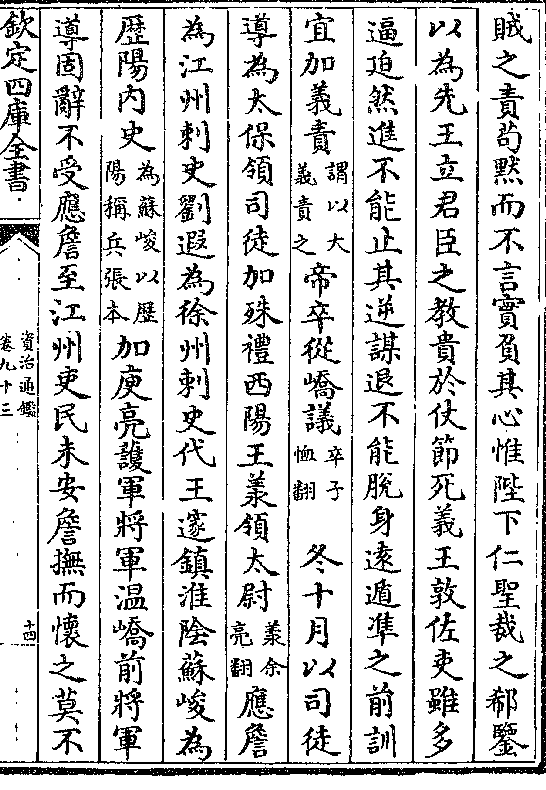 賊之責苟黙而不言實負其心惟陛下仁聖裁之郗鑒
以為先王立君臣之教貴於伏節死義王敦佐吏雖多
逼迫然進不能止其逆謀退不能脫身逺遁凖之前訓
宜加義責謂以大義責之帝卒從嶠議卒子恤翻冬十月以司徒
導為太保領司徒加殊禮西陽王羕領太尉羕余亮翻應詹
為江州刺史劉遐為徐州刺史代王邃鎮淮陰蘇峻為
歴陽内史為蘇峻以歴陽稱兵張本加庾亮䕶軍將軍温嶠前將軍
導固辭不受應詹至江州吏民未安詹撫而懷之莫不
欽定四庫全書
資治通鑑
卷九十三
十四